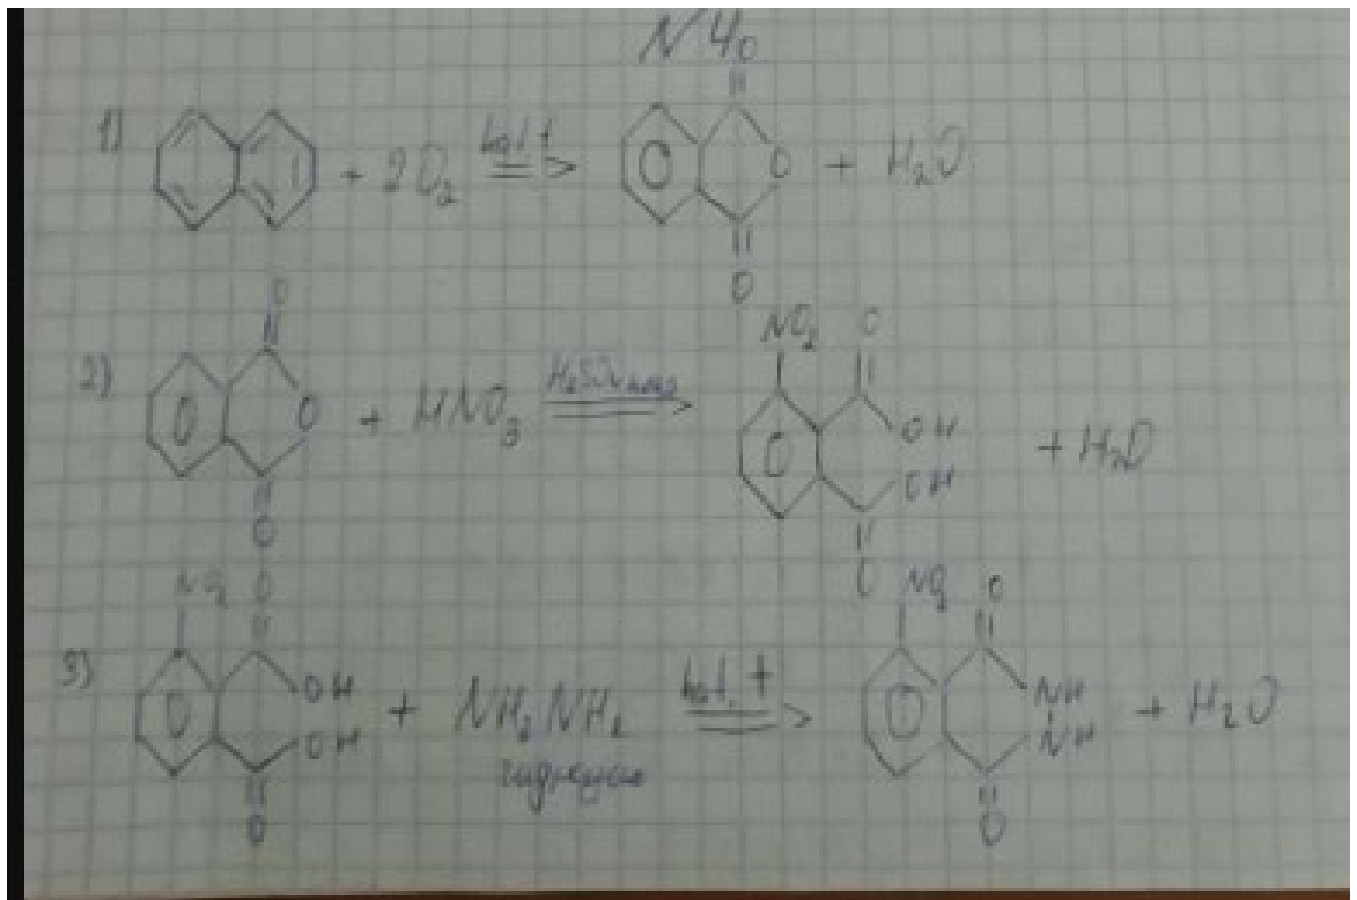 N4
1) + 2O₂ kat, t O O O + H₂O
2) O O O + HNO₃ H₂SO₄ NO₂ O OH OH O + H₂O
3) NO₂ O OH OH O + NH₂NH₂ kat, t NO₂ O NH NH O + H₂O
гидразин